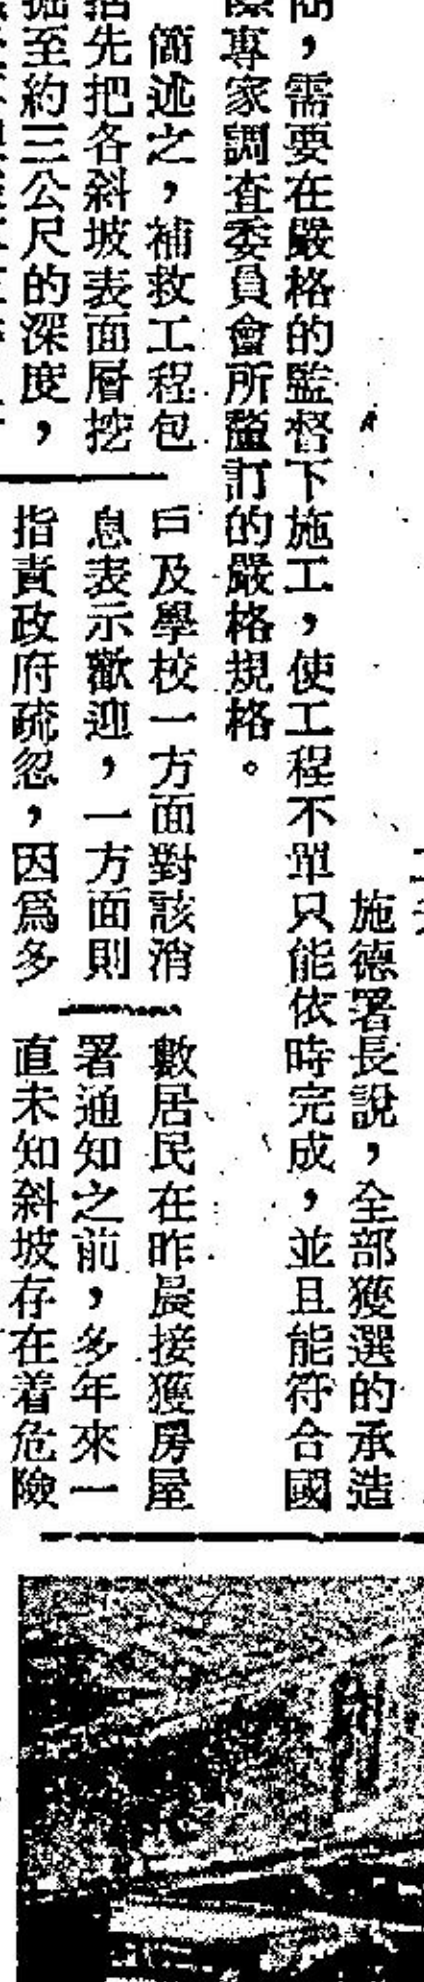 施德署長說，全部獲選的承造
商，需要在嚴格的監督下施工，使工程不單只能依時完成，並且能符合國
際專家調查委員會所釐訂的嚴格規格。
簡述之，補救工程包
括先把各斜坡表面層挖
掘至約三公尺的深度，
戶及學校一方面對該消
息表示歡迎，一方面則
指責政府疏忽，因爲多
數居民在昨晨接獲房屋
署通知之前，多年來一
直未知斜坡存在着危險